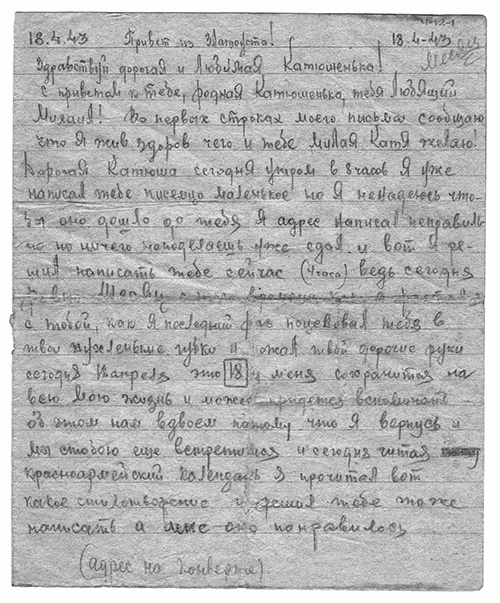 18.4.43 Привет из Златоуста! 18.4-43
Здравствуй дорогая и Любимая, Катюшенька!
с приветом к тебе, родная Катюшенька, тебя Любящий
Михаил! Во первых строках моего письма сообщаю
что я жив здоров чего и тебе милая Катя желаю!
Дорогая Катюша сегодня утром в 8 часов я уже
написал тебе письмецо маленькое но я ненадеюсь что-
оно дошло до тебя я адрес написал неправиль-
но но ничего неподелаешь уже сдал, и вот я ре-
шил написать тебе сейчас ведь сегодня
с тобой, как я последний раз поцеловал тебя в
твои губки и твои дорогие руки
сегодня 18 апреля это 18 у меня сохранится на
всю мою жизнь и может придется вспоминать
об этом нам вдвоем потому что я вернусь и
мы стобою еще встретимся и сегодня читая
красноармейский календарь я прочитал вот
какое стихотворение и решил тебе тоже
написать а мне оно понравилось
(адрес на конверте)